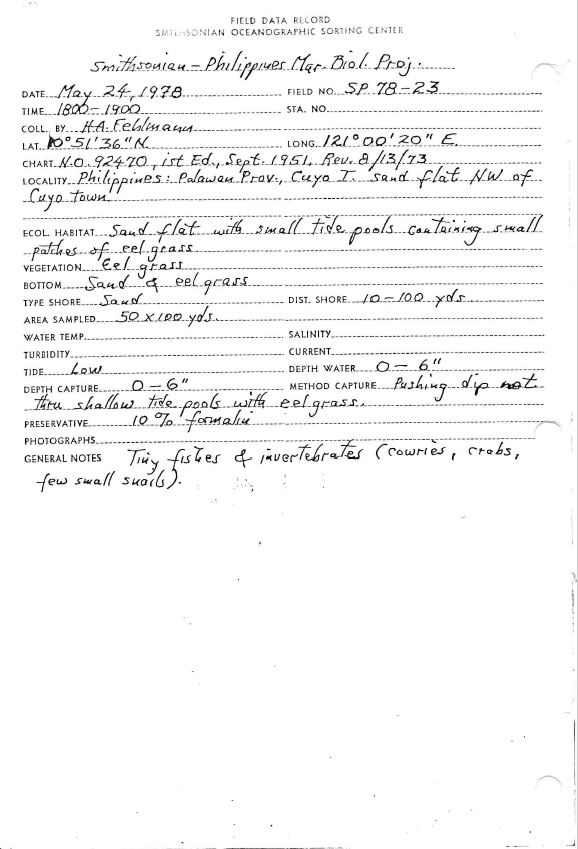 FIELD DATA RECORD
SMITHSONIAN OCEANOGRAPHIC SORTING CENTER
Smithsonian - Philippines Mar. Biol. Proj.
DATE May 24, 1978 FIELD NO. SP 78-23
TIME 1800-1900 STA. NO.
COLL. BY H.A. Fehlmann
LAT. 10° 51' 36" N LONG. 121° 00' 20" E.
CHART N.O. 92470, 1st Ed., Sept. 1951, Rev. 8/13/73
LOCALITY Philippines: Palawan Prov., Cuyo I. sand flat NW of
Cuyo town
ECOL. HABITAT Sand flat with small tide pools containing small
patches of eelgrass
VEGETATION Eel grass
BOTTOM Sand & eelgrass
TYPE SHORE Sand DIST. SHORE 10-100 yds.
AREA SAMPLED 50 x 100 yds.
WATER TEMP. SALINITY
TURBIDITY CURRENT
TIDE Low DEPTH WATER 0-6"
DEPTH CAPTURE 0-6" METHOD CAPTURE Pushing dip net
thru shallow tide pools with eelgrass.
PRESERVATIVE 10% formalin
PHOTOGRAPHS
GENERAL NOTES Tiny fishes & invertebrates (cowries, crabs,
few small snails).